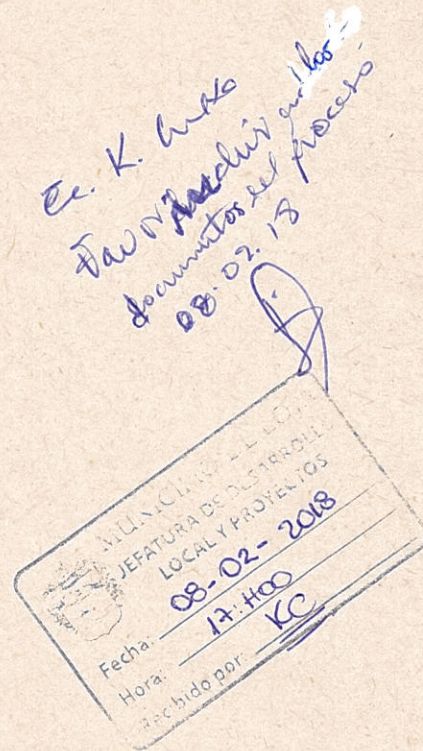 Ec. K.
Favor en los
documentos del proceso
08.02.18
MUNICIPIO DE LOJA
JEFATURA DE DESARROLLO
LOCAL Y PROYECTOS
Fecha: 08-02-2018
Hora: 17:H00
Recibido por: KC